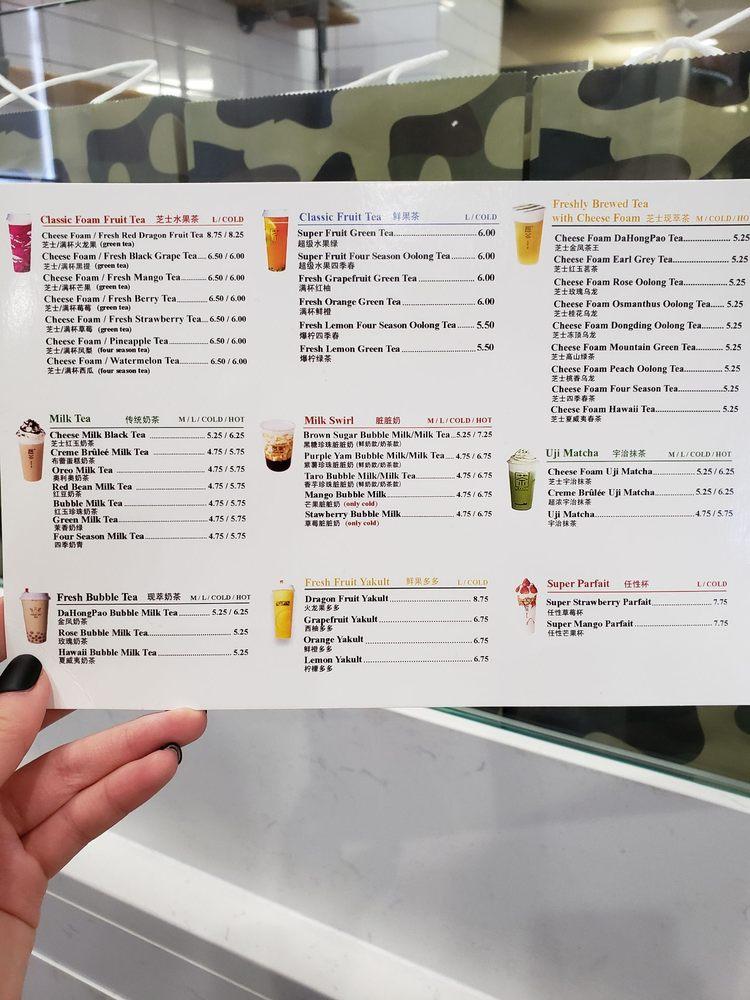 Classic Foam Fruit Tea 芝士水果茶 L / COLD
Cheese Foam / Fresh Red Dragon Fruit Tea 8.75 / 8.25
芝士/满杯火龙果 (green tea)
Cheese Foam / Fresh Black Grape Tea.... 6.50 / 6.00
芝士/满杯黑提 (green tea)
Cheese Foam / Fresh Mango Tea......... 6.50 / 6.00
芝士/满杯芒果 (green tea)
Cheese Foam / Fresh Berry Tea........... 6.50 / 6.00
芝士/满杯莓莓 (green tea)
Cheese Foam / Fresh Strawberry Tea... 6.50 / 6.00
芝士/满杯草莓 (green tea)
Cheese Foam / Pineapple Tea............. 6.50 / 6.00
芝士/满杯凤梨 (four season tea)
Cheese Foam / Watermelon Tea......... 6.50 / 6.00
芝士/满杯西瓜 (four season tea)
Classic Fruit Tea 鲜果茶 L / COLD
Super Fruit Green Tea.......................... 6.00
超级水果绿
Super Fruit Four Season Oolong Tea........ 6.00
超级水果四季春
Fresh Grapefruit Green Tea................... 6.00
满杯红柚
Fresh Orange Green Tea........................ 6.00
满杯鲜橙
Fresh Lemon Four Season Oolong Tea....... 5.50
爆柠四季春
Fresh Lemon Green Tea........................ 5.50
爆柠绿茶
Freshly Brewed Tea
with Cheese Foam 芝士现萃茶 M / COLD / HO
Cheese Foam DaHongPao Tea............... 5.25
芝士金凤茶王
Cheese Foam Earl Grey Tea.................. 5.25
芝士红玉茗茶
Cheese Foam Rose Oolong Tea.............. 5.25
芝士玫瑰乌龙
Cheese Foam Osmanthus Oolong Tea...... 5.25
芝士桂花乌龙
Cheese Foam Dongding Oolong Tea........ 5.25
芝士冻顶乌龙
Cheese Foam Mountain Green Tea......... 5.25
芝士高山绿茶
Cheese Foam Peach Oolong Tea............. 5.25
芝士桃香乌龙
Cheese Foam Four Season Tea............... 5.25
芝士四季春茶
Cheese Foam Hawaii Tea...................... 5.25
芝士夏威夷春茶
Milk Tea 传统奶茶 M / L / COLD / HOT
Cheese Milk Black Tea .................. 5.25 / 6.25
芝士红玉奶茶
Creme Brûleé Milk Tea................. 4.75 / 5.75
布蕾蛋糕奶茶
Oreo Milk Tea ........................... 4.75 / 5.75
奥利奥奶茶
Red Bean Milk Tea...................... 4.75 / 5.75
红豆奶茶
Bubble Milk Tea......................... 4.75 / 5.75
红玉珍珠奶茶
Green Milk Tea.......................... 4.75 / 5.75
茉香奶绿
Four Season Milk Tea.................. 4.75 / 5.75
四季奶青
Milk Swirl 脏脏奶 M / L / COLD / HOT
Brown Sugar Bubble Milk/Milk Tea...5.25 / 7.25
黑糖珍珠脏脏奶 (鲜奶款/奶茶款)
Purple Yam Bubble Milk/Milk Tea.... 4.75 / 6.75
紫薯珍珠脏脏奶 (鲜奶款/奶茶款)
Taro Bubble Milk/Milk Tea............ 4.75 / 6.75
香芋珍珠脏脏奶 (鲜奶款/奶茶款)
Mango Bubble Milk..................... 4.75 / 6.75
芒果脏脏奶 (only cold)
Stawberry Bubble Milk................ 4.75 / 6.75
草莓脏脏奶 (only cold)
Uji Matcha 宇治抹茶 M / L / COLD / HOT
Cheese Foam Uji Matcha.............. 5.25 / 6.25
芝士宇治抹茶
Creme Brûlée Uji Matcha............. 5.25 / 6.25
超浓宇治抹茶
Uji Matcha................................ 4.75 / 5.75
宇治抹茶
Fresh Bubble Tea 现萃奶茶 M / L / COLD / HOT
DaHongPao Bubble Milk Tea.......... 5.25 / 6.25
金凤奶茶
Rose Bubble Milk Tea.......................... 5.25
玫瑰奶茶
Hawaii Bubble Milk Tea....................... 5.25
夏威夷奶茶
Fresh Fruit Yakult 鲜果多多 L / COLD
Dragon Fruit Yakult........................... 8.75
火龙果多多
Grapefruit Yakult.............................. 6.75
西柚多多
Orange Yakult .................................. 6.75
鲜橙多多
Lemon Yakult .................................. 6.75
柠檬多多
Super Parfait 任性杯 L / COLD
Super Strawberry Parfait..................... 7.75
任性草莓杯
Super Mango Parfait.......................... 7.75
任性芒果杯